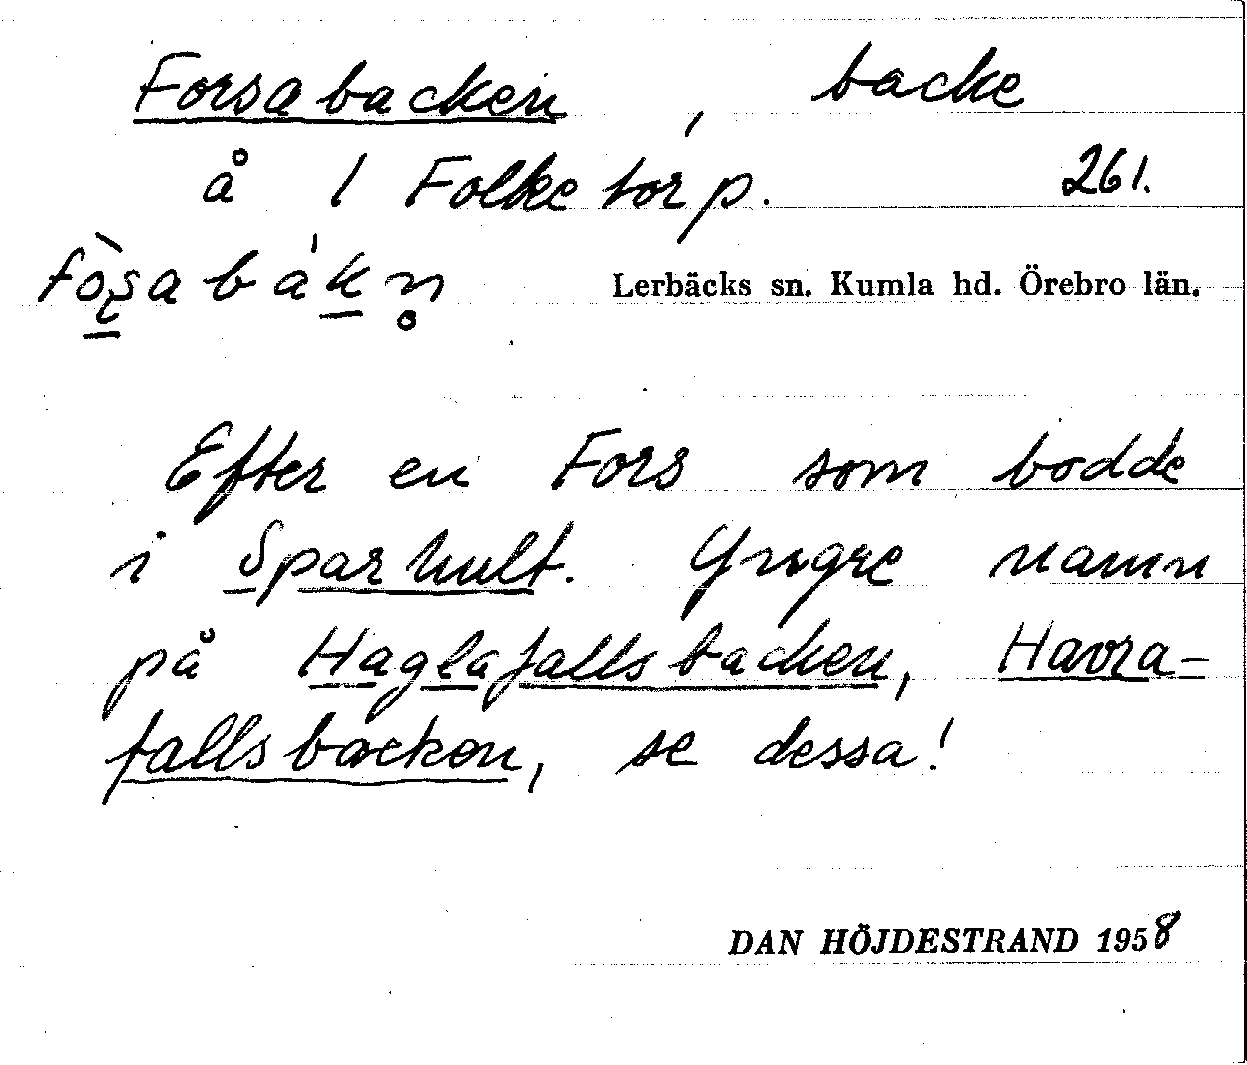 Forsabacken, backe
å 1 Folketorp. 261.
Lerbäcks sn. Kumla hd. Örebro län.
Efter en Fors som bodde
i Sparhult. Yngre namn
på Haglafallsbacken, Havra-
fallsbacken, se dessa!
DAN HÖJDESTRAND 1958